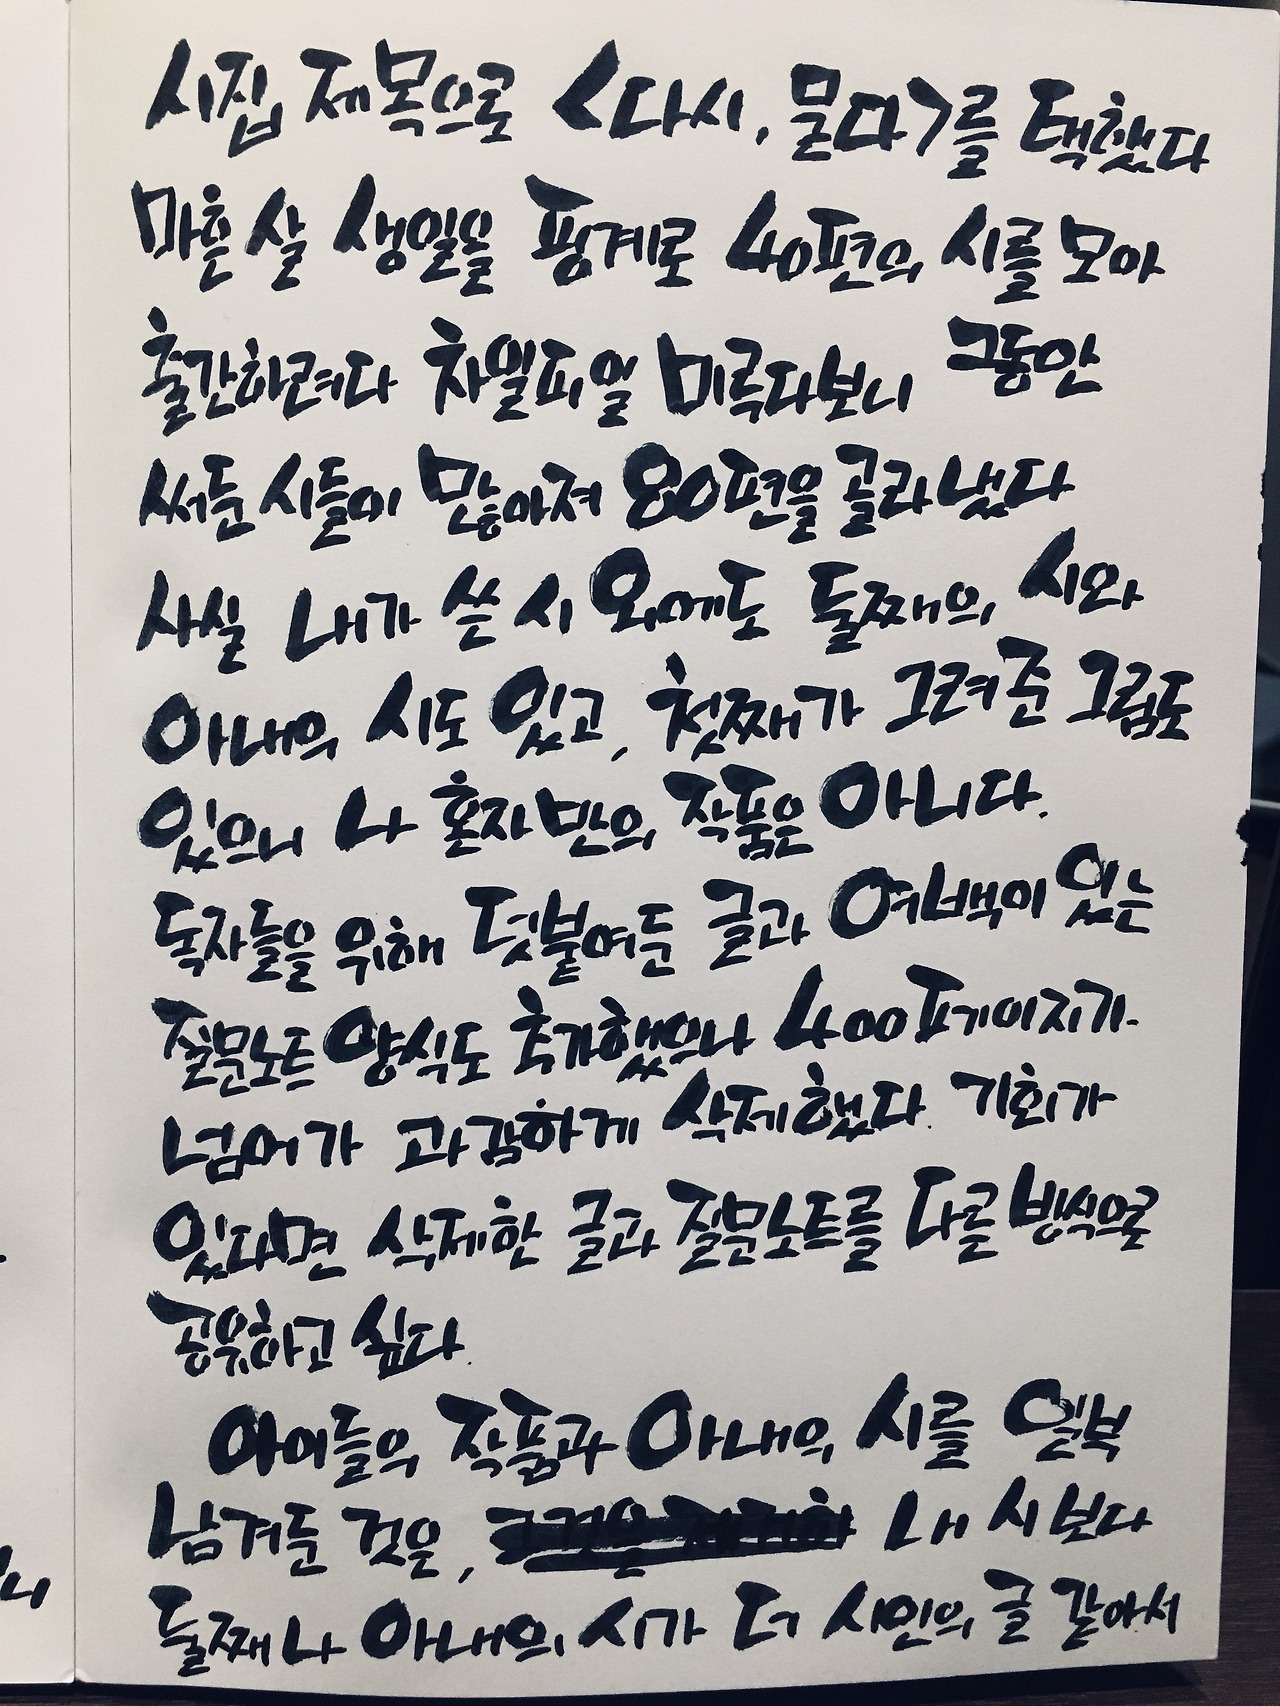 시집 제목으로 <다시, 묻다>를 택했다
마흔 살 생일을 핑계로 40편의 시를 모아
출간하려다 차일피일 미루다보니 그동안
써둔 시들이 많아져 80편을 골라냈다
사실 내가 쓴 시 외에도 둘째의 시와
아내의 시도 있고, 첫째가 그려준 그림도
있으니 나 혼자만의 작품은 아니다.
독자들을 위해 덧붙여둔 글과 여백이 있는
질문노트 양식도 추가했으나 400페이지가
넘어가 과감하게 삭제했다. 기회가
있다면 삭제한 글과 질문노트를 다른 방식으로
공유하고 싶다.
아이들의 작품과 아내의 시를 일부
남겨둔 것은, 내 시보다
둘째나 아내의 시가 더 시인의 글 같아서